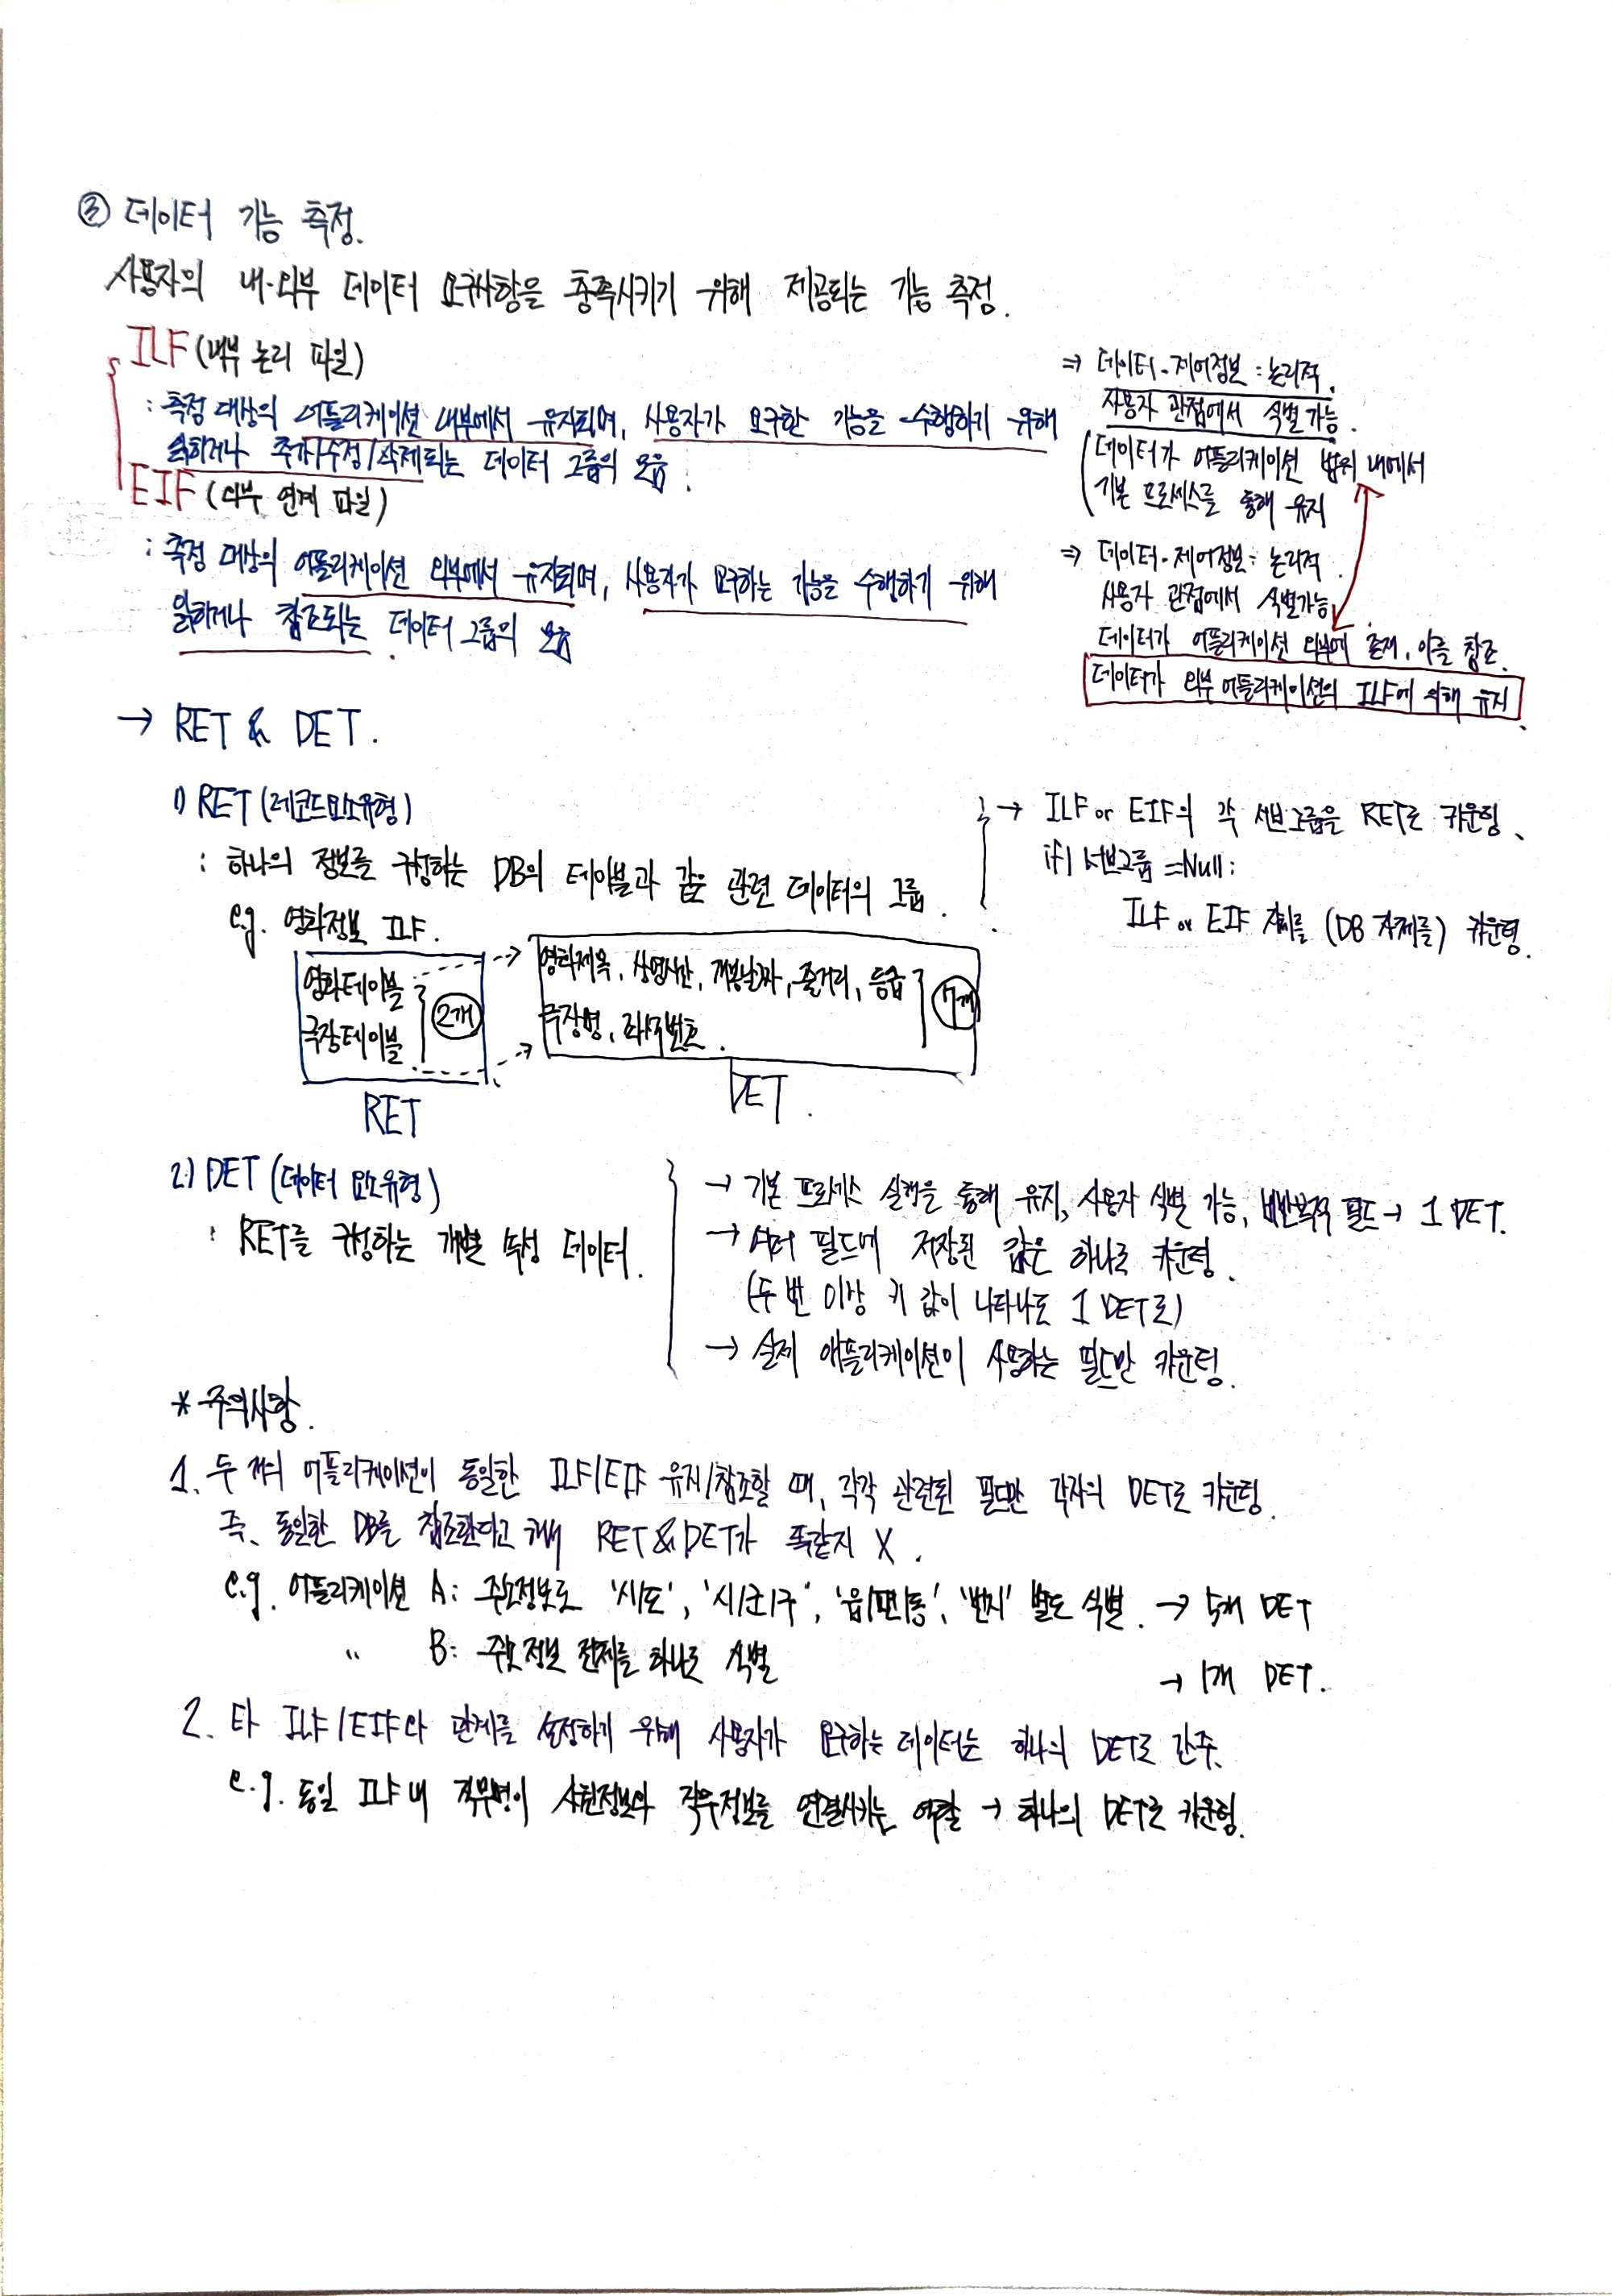 ③ 데이터 기능 측정.
사용자의 내·외부 데이터 요구사항을 충족시키기 위해 제공되는 기능 측정.
ILF (내부 논리 파일)
: 측정 대상의 어플리케이션 내부에서 유지되며, 사용자가 요구한 기능을 수행하기 위해
읽히거나 추가/수정/삭제되는 데이터 그룹의 모음.
⇒ 데이터·제어정보 : 논리적.
사용자 관점에서 식별 가능.
데이터가 어플리케이션 범위 내에서
기본 프로세스를 통해 유지
EIF (외부 연계 파일)
: 측정 대상의 어플리케이션 외부에서 유지되며, 사용자가 요구하는 기능을 수행하기 위해
읽히거나 참조되는 데이터 그룹의 모음.
⇒ 데이터·제어정보 : 논리적.
사용자 관점에서 식별가능
데이터가 어플리케이션 외부에 존재, 이를 참조.
데이터가 외부 어플리케이션의 ILF에 의해 유지.
→ RET & DET.
1) RET (레코드요소유형)
: 하나의 정보를 구성하는 DB의 테이블과 같은 관련 데이터의 그룹.
→ ILF or EIF의 각 서브그룹을 RET로 카운팅.
if) 서브그룹 = Null:
ILF or EIF 자체를 (DB 자체를) 카운팅.
e.g. 영화정보 ILF.
영화테이블
극장테이블
2개
RET
영화제목, 상영시간, 개봉날짜, 줄거리, 등급
극장명, 좌석번호.
7개
DET.
2) DET (데이터 요소유형)
: RET를 구성하는 개별 속성 데이터.
→ 기본 프로세스 실행을 통해 유지, 사용자 식별 가능, 비반복적 필드 → 1 DET.
→ 여러 필드에 저장된 값은 하나로 카운팅.
(두 번 이상 키 값이 나타나도 1 DET로)
→ 실제 애플리케이션이 사용하는 필드만 카운팅.
* 주의사항.
1. 두 개의 어플리케이션이 동일한 ILF/EIF 유지/참조할 때, 각각 관련된 필드만 각자의 DET로 카운팅.
즉, 동일한 DB를 참조한다고 해서 RET & DET가 똑같지 X.
e.g. 어플리케이션 A: 주소정보로 '시/도', '시/군/구', '읍/면/동', '번지' 별도 식별. → 5개 DET
〃 B: 주소정보 전체를 하나로 식별 → 1개 DET.
2. 타 ILF/EIF와 관계를 설정하기 위해 사용자가 요구하는 데이터는 하나의 DET로 간주.
e.g. 동일 ILF 내 직무명이 사원정보와 직무정보를 연결시키는 역할 → 하나의 DET로 카운팅.